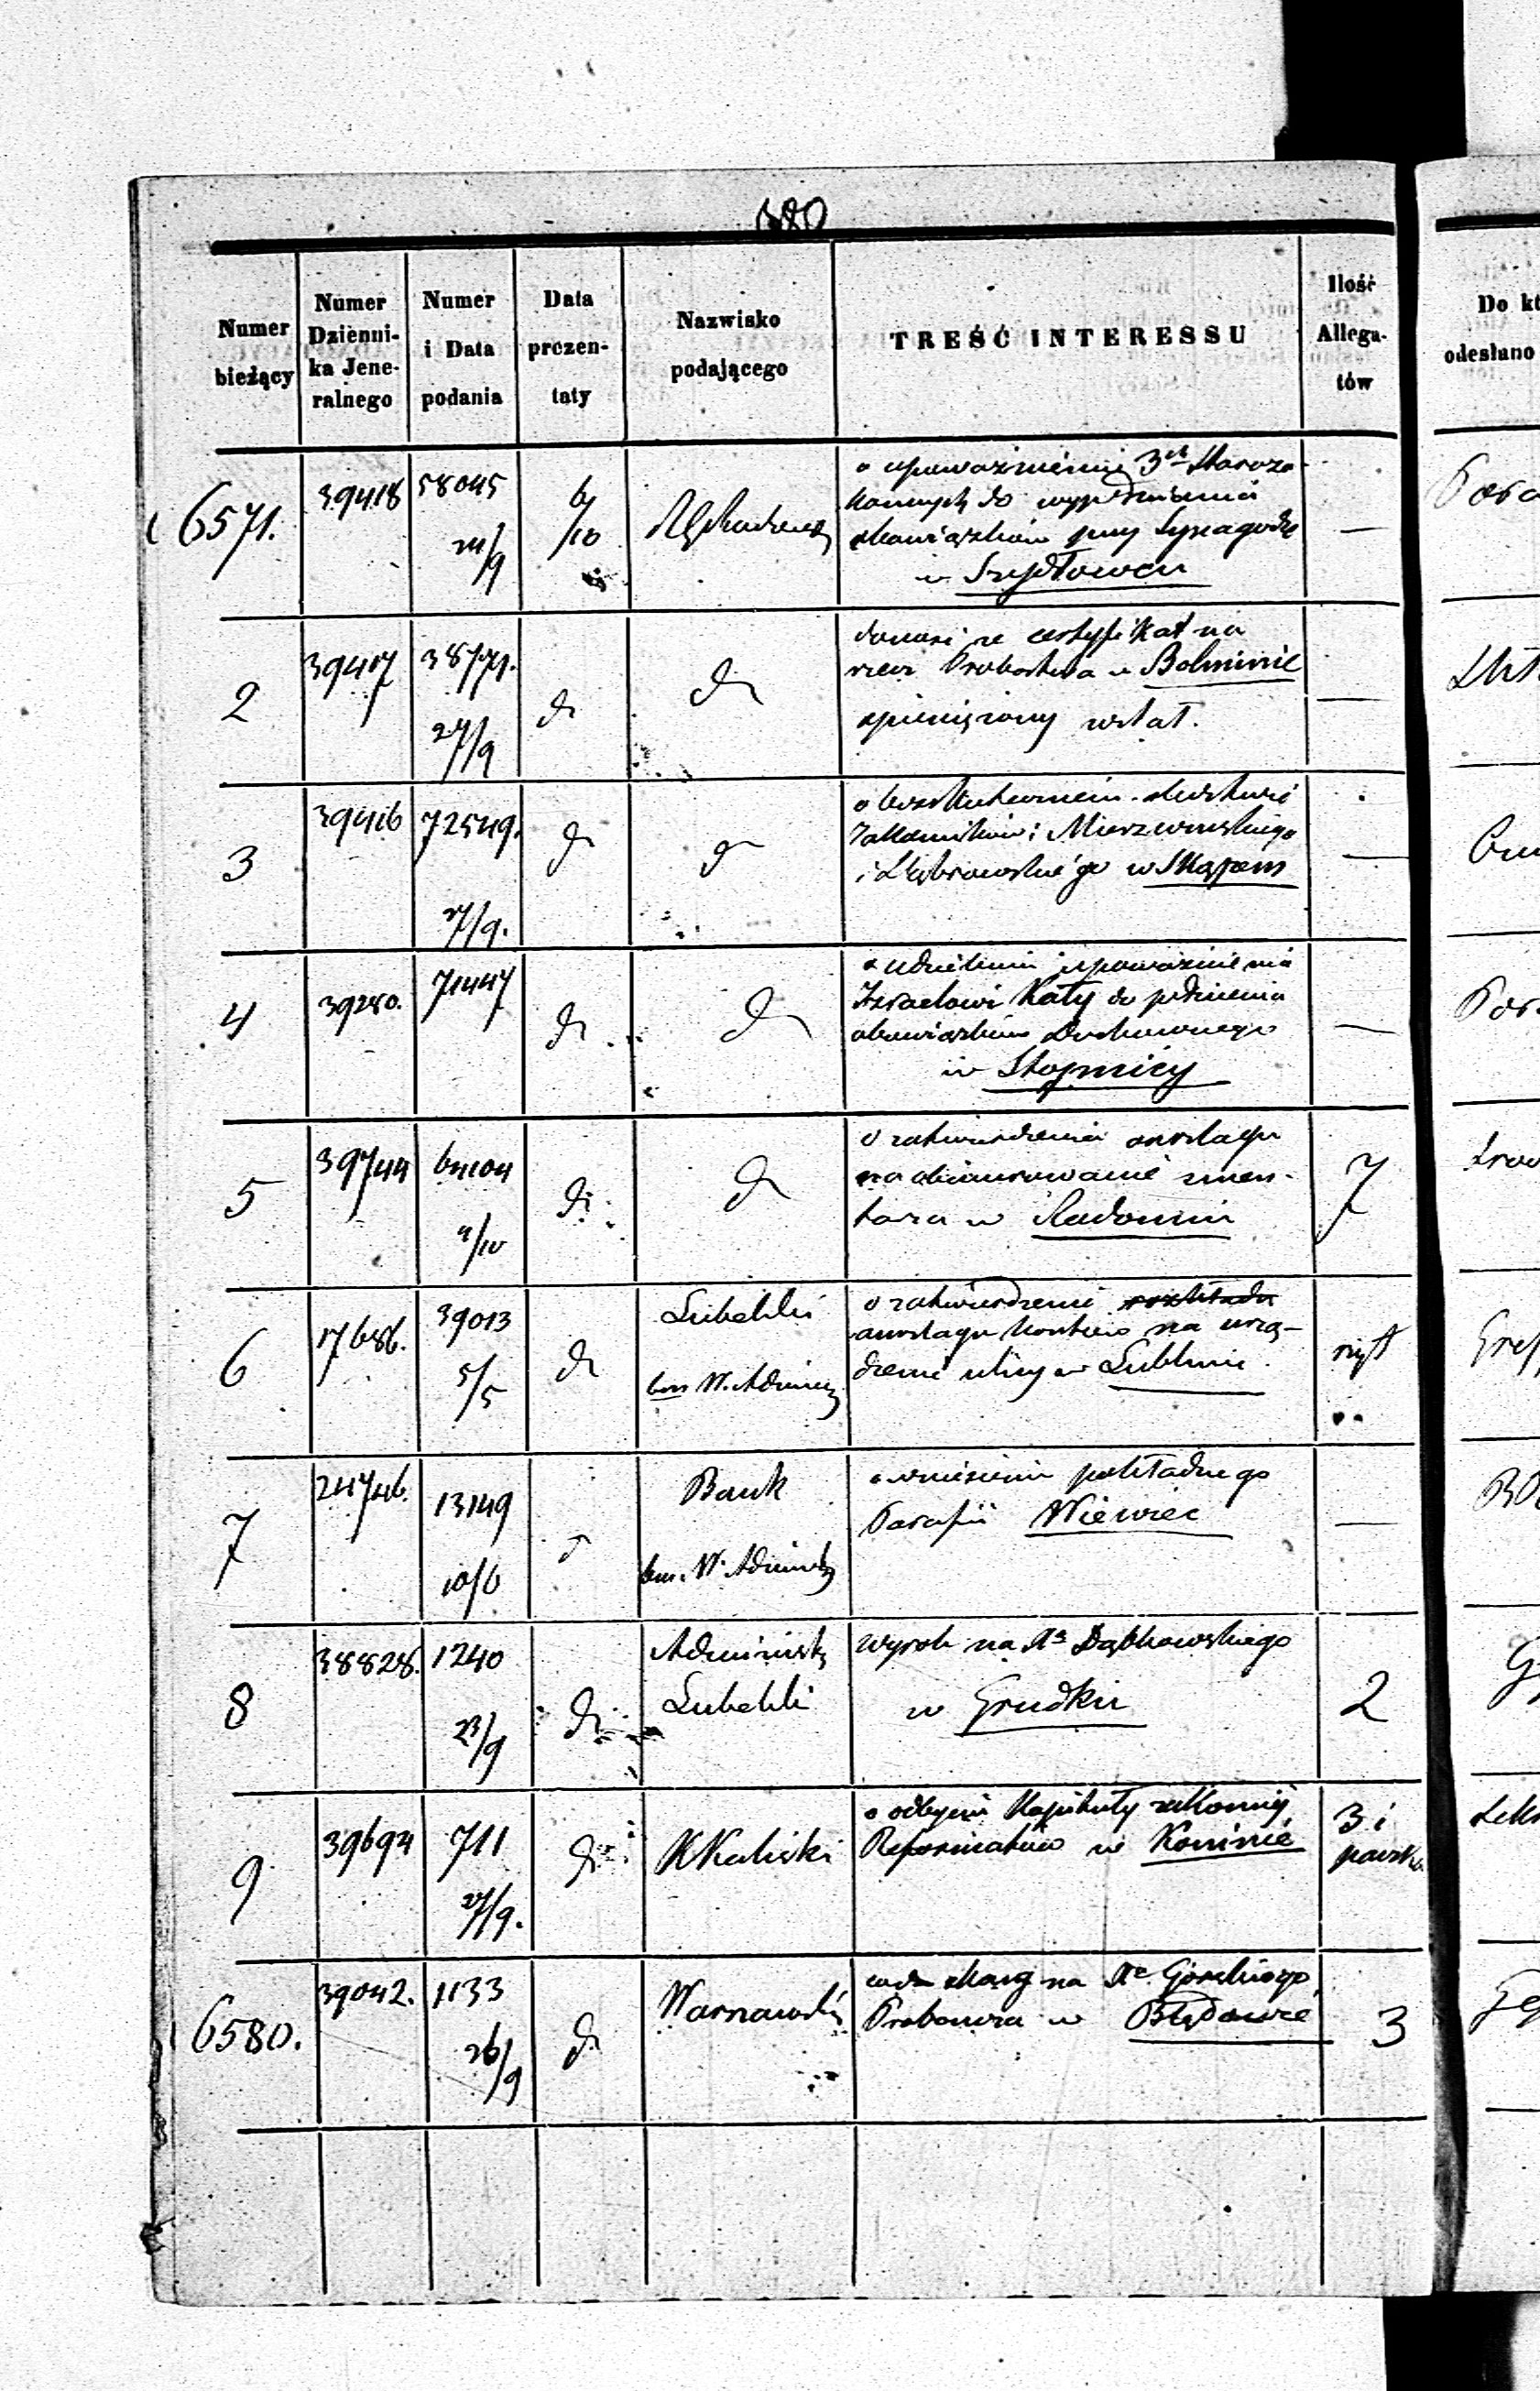 380
Numer bieżący
Numer Dzienni-ka Jene-ralnego
Numer i Data podania
Data prezen-taty
Nazwisko podającego
TREŚĆ INTERESSU
Ilość Allega-tów
Do kt
odesłano
6571.
39418
58045
24/9
6/10
o upoważnienie 3ch Staroza-
konnych do wypełnienia
obowiązków przy Synagodze
w Szydłowcu
—
2
39417
38771.
27/9
dt
dt
donosi że certyfikat na
rzecz Probostwa w Bolminie
spieniężony został.
—
3
39416
72549.
27/9.
dt
dt
Zakonników: Mierzewskiego
i Dąbrowskiego w Skąpem
—
4
39280.
71447
dt
dt
o udzielenie upoważnienia
Izraelowi Kały do pełnienia
obowiązków Duchownego
w Stopnicy
—
5
39744
64104
4/10
dt
dt
o zatwierdzenie anszlagu
na obmurowanie smen-
tarza w Radomiu
7
6
17686.
39013
5/5
dt
Lubelski
W. Adminis
o zatwierdzenie rozkładu
anszlagu kosztów na urzą-
dzenie ulicy w Lublinie.
7
24746.
13149
10/6
Bank
W. Administr
o wniesienie pokładnego
Parafii Wiewiec
—
8
38828.
1240
23/9
dt
Administr
Lubelski
wyrok na Xa Dąbkowskiego
w Grudku
2
9
39694
711
27/9.
dt
KKaliski
o odbyciu Kapituły zakonnej
Reformatów w Koninie
3 i
6580.
39042.
1133
26/9
dt
Warszawski
skarg na Xa Górskiego
Proboszcza w Błędowie
3